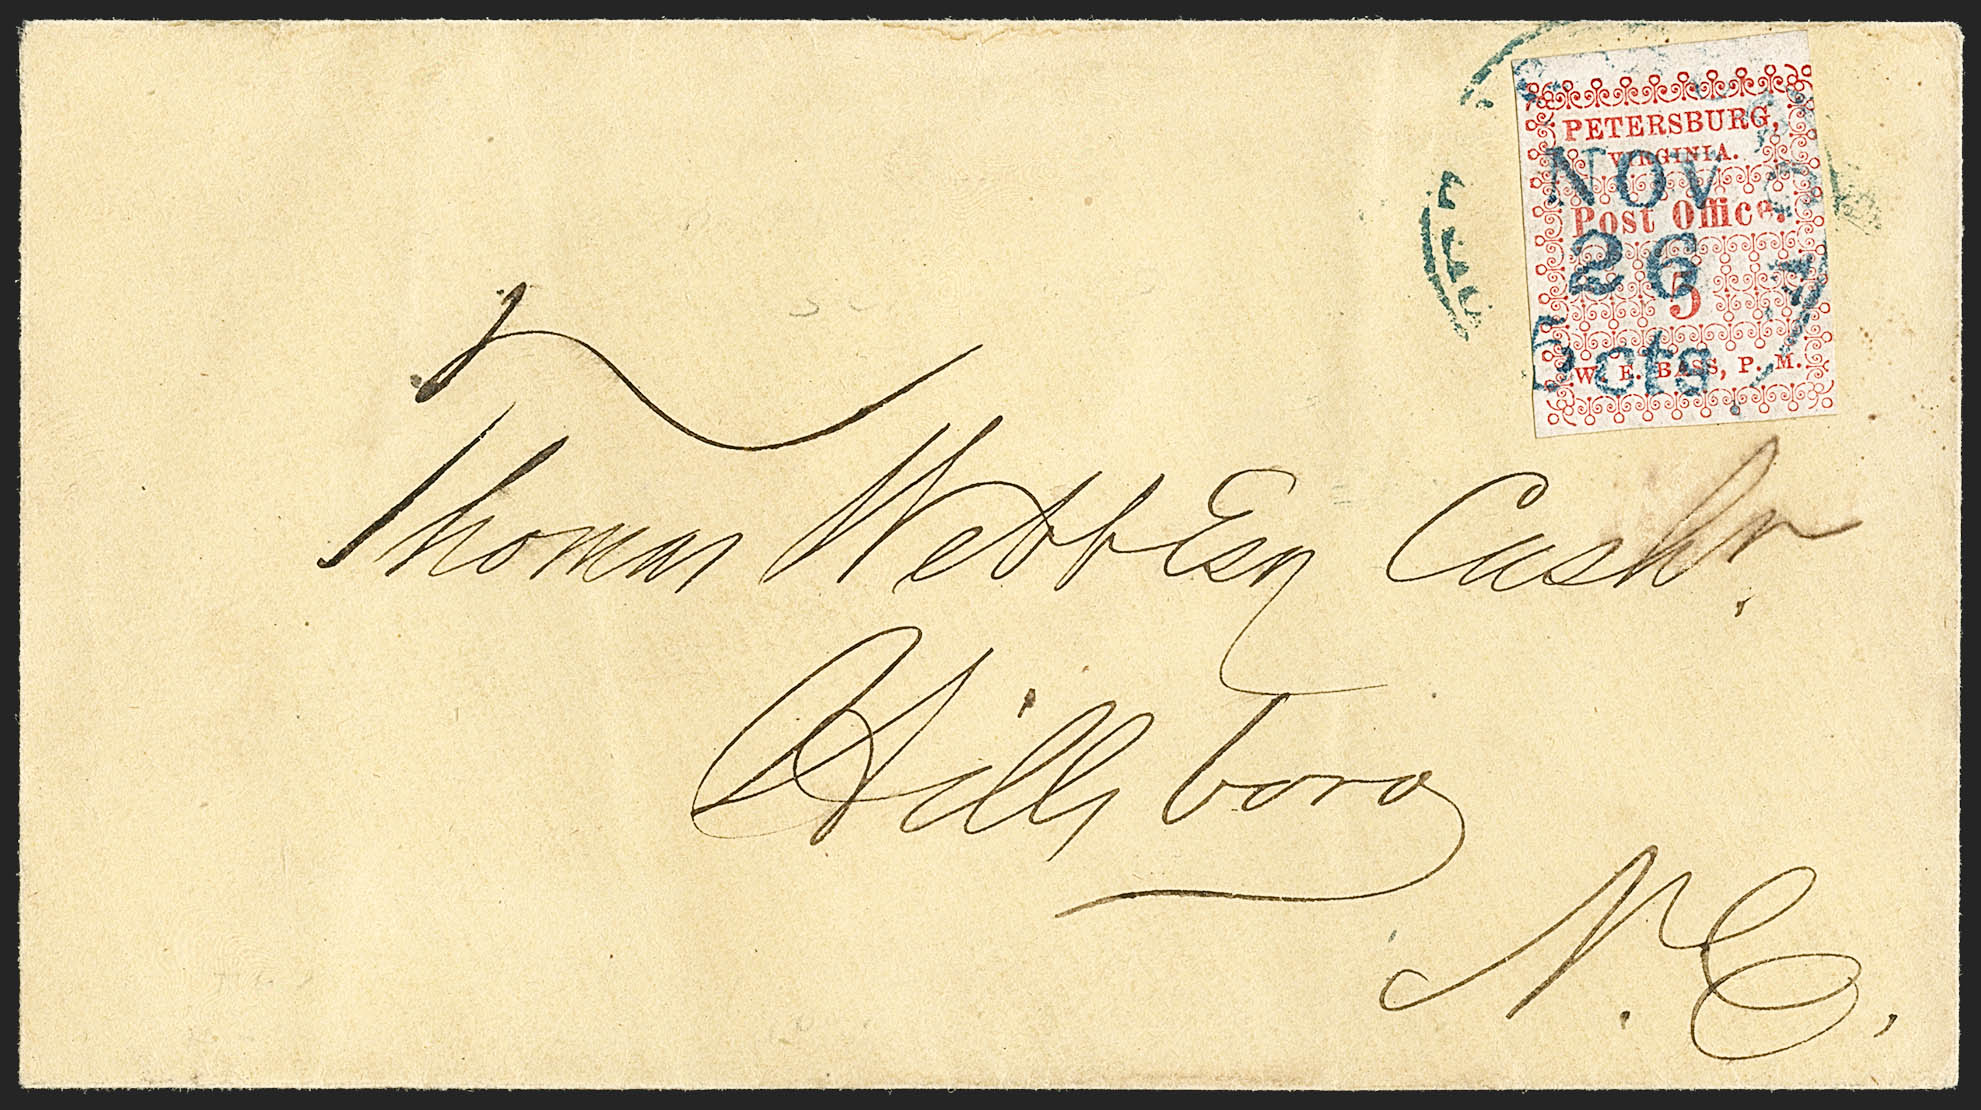 PETERSBURG,
VIRGINIA.
Post Office.
5
W. E. BASS, P. M.
NOV
26
5 cts
Thomas Webb Esq Cashr.
Hillsboro
N. C.